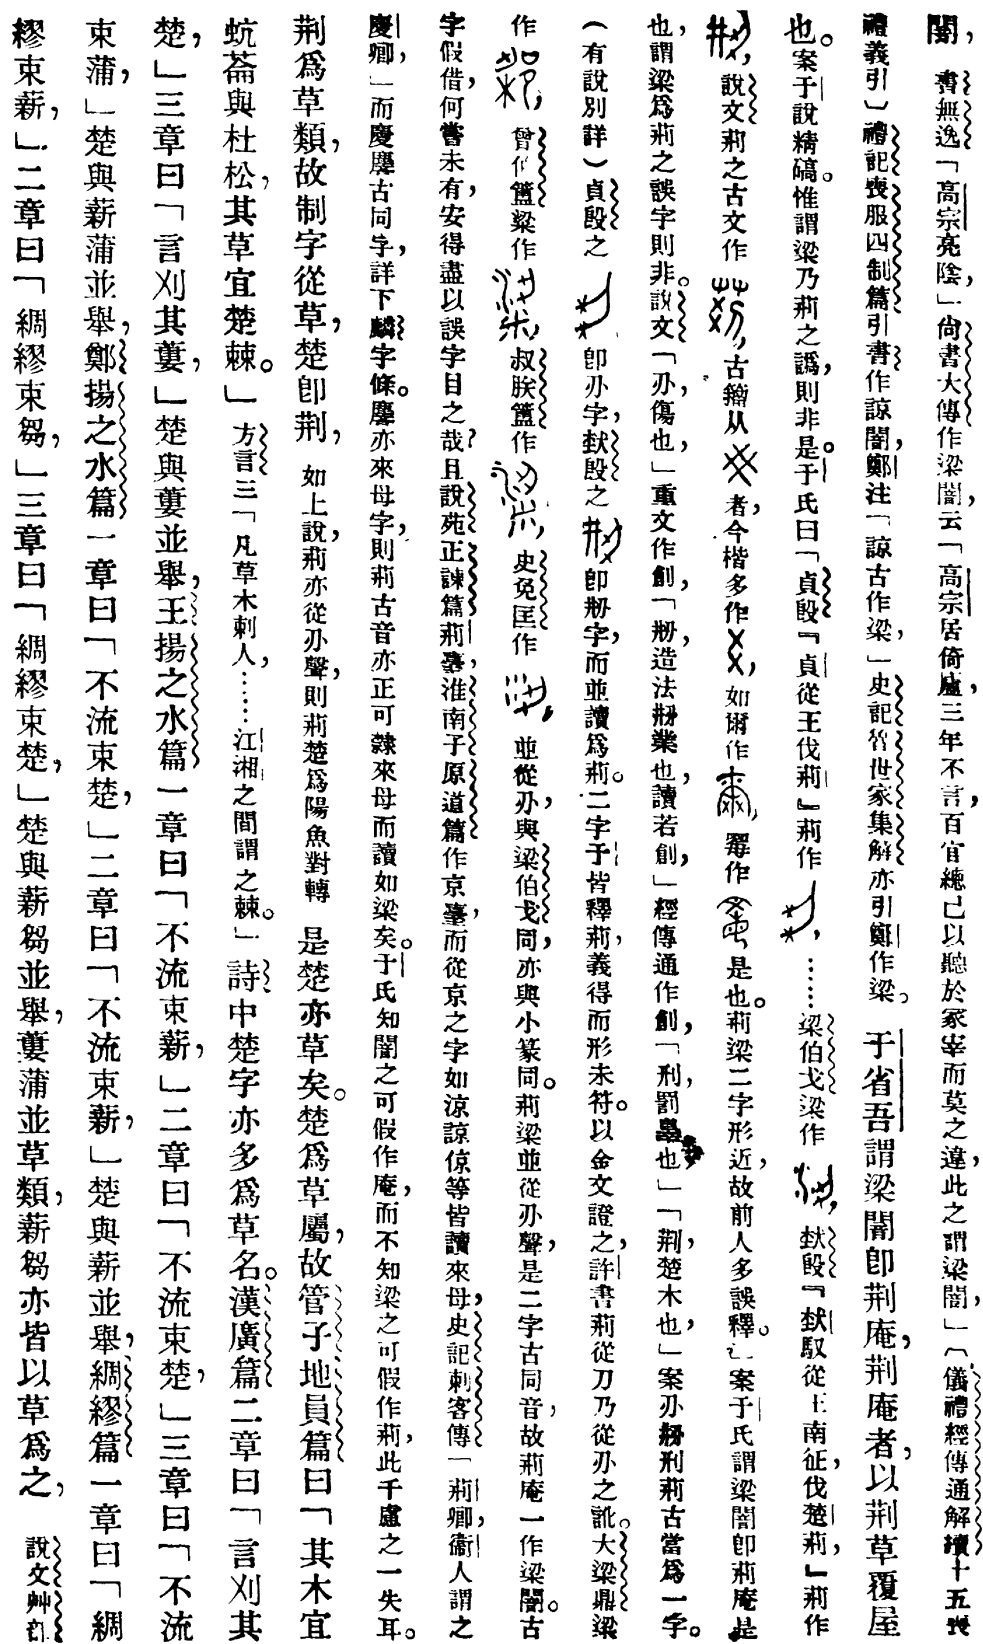 闇，書無逸「高宗亮陰，」尙書大傳作梁闇，云「高宗居倚廬，三年不言，百官總己以聽於冢宰而莫之違，此之謂梁闇，」（儀禮經傳通解續十五喪
禮義引）禮記喪服四制篇引書作諒闇，鄭注「諒古作梁，」史記魯世家集解亦引鄭作梁。于省吾謂梁闇卽荆庵，荆庵者，以荆草覆屋
也。案于說精碻。惟謂梁乃荊之譌，則非是。于氏曰「貞𣪘『貞從王伐荊』荊作，……梁伯戈梁作，𣪘『馭從王南征，伐楚荊，』荊作
，說文荊之古文作，古籀从者，今楷多作，如爾作，作是也。荊梁二字形近，故前人多誤釋。」案于氏謂梁闇卽荊庵是
也，謂梁爲荊之誤字則非。說文「刅，傷也」重文作創，「刱，造法刱業也，讀若創，」經傳通作創，「刑，罰辠也」「荆，楚木也，」案刅刱刑荊古當爲一字。
（有說別詳）貞𣪘之卽刅字，𣪘之卽刱字，而並讀爲荊。二字于皆釋荊，義得而形未符。以金文證之，許書荊從刀乃從刅之訛。大梁鼎梁
作，曾伯簠粱作，叔朕簠作，史免匡作，並從刅，與梁伯戈同，亦與小篆同。荊梁並從刅聲，是二字古同音，故荊庵一作梁闇。古
字假借，何嘗未有，安得盡以誤字目之哉？且說苑正諫篇荊臺，淮南子原道篇作京臺，而從京之字如涼諒倞等皆讀來母，史記刺客傳「荊卿，衞人謂之
慶卿，」而慶麐古同字，詳下麟字條。麐亦來母字，則荊古音亦正可隸來母而讀如梁矣。于氏知闇之可假作庵，而不知梁之可假作荊，此千慮之一失耳。
荆爲草類，故制字從草，楚卽荆，如上說，荊亦從刅聲，則荊楚爲陽魚對轉是楚亦草矣。楚爲草屬，故管子地員篇曰「其木宜
蚖菕與杜松，其草宜楚棘。」方言三「凡草木刺人，……江湘之間謂之棘。」詩中楚字亦多爲草名。漢廣篇二章曰「言刈其
楚，」三章曰「言刈其蔞，」楚與蔞並舉，王揚之水篇一章曰「不流束薪，」二章曰「不流束楚，」三章曰「不流
束蒲，」楚與薪蒲並舉，鄭揚之水篇一章曰「不流束楚，」二章曰「不流束薪，」楚與薪並舉，綢繆篇一章曰「綢
繆束薪，」二章曰「綢繆束芻，」三章曰「綢繆束楚，」楚與薪芻並舉，蔞蒲並草類，薪芻亦皆以草爲之，說文艸部